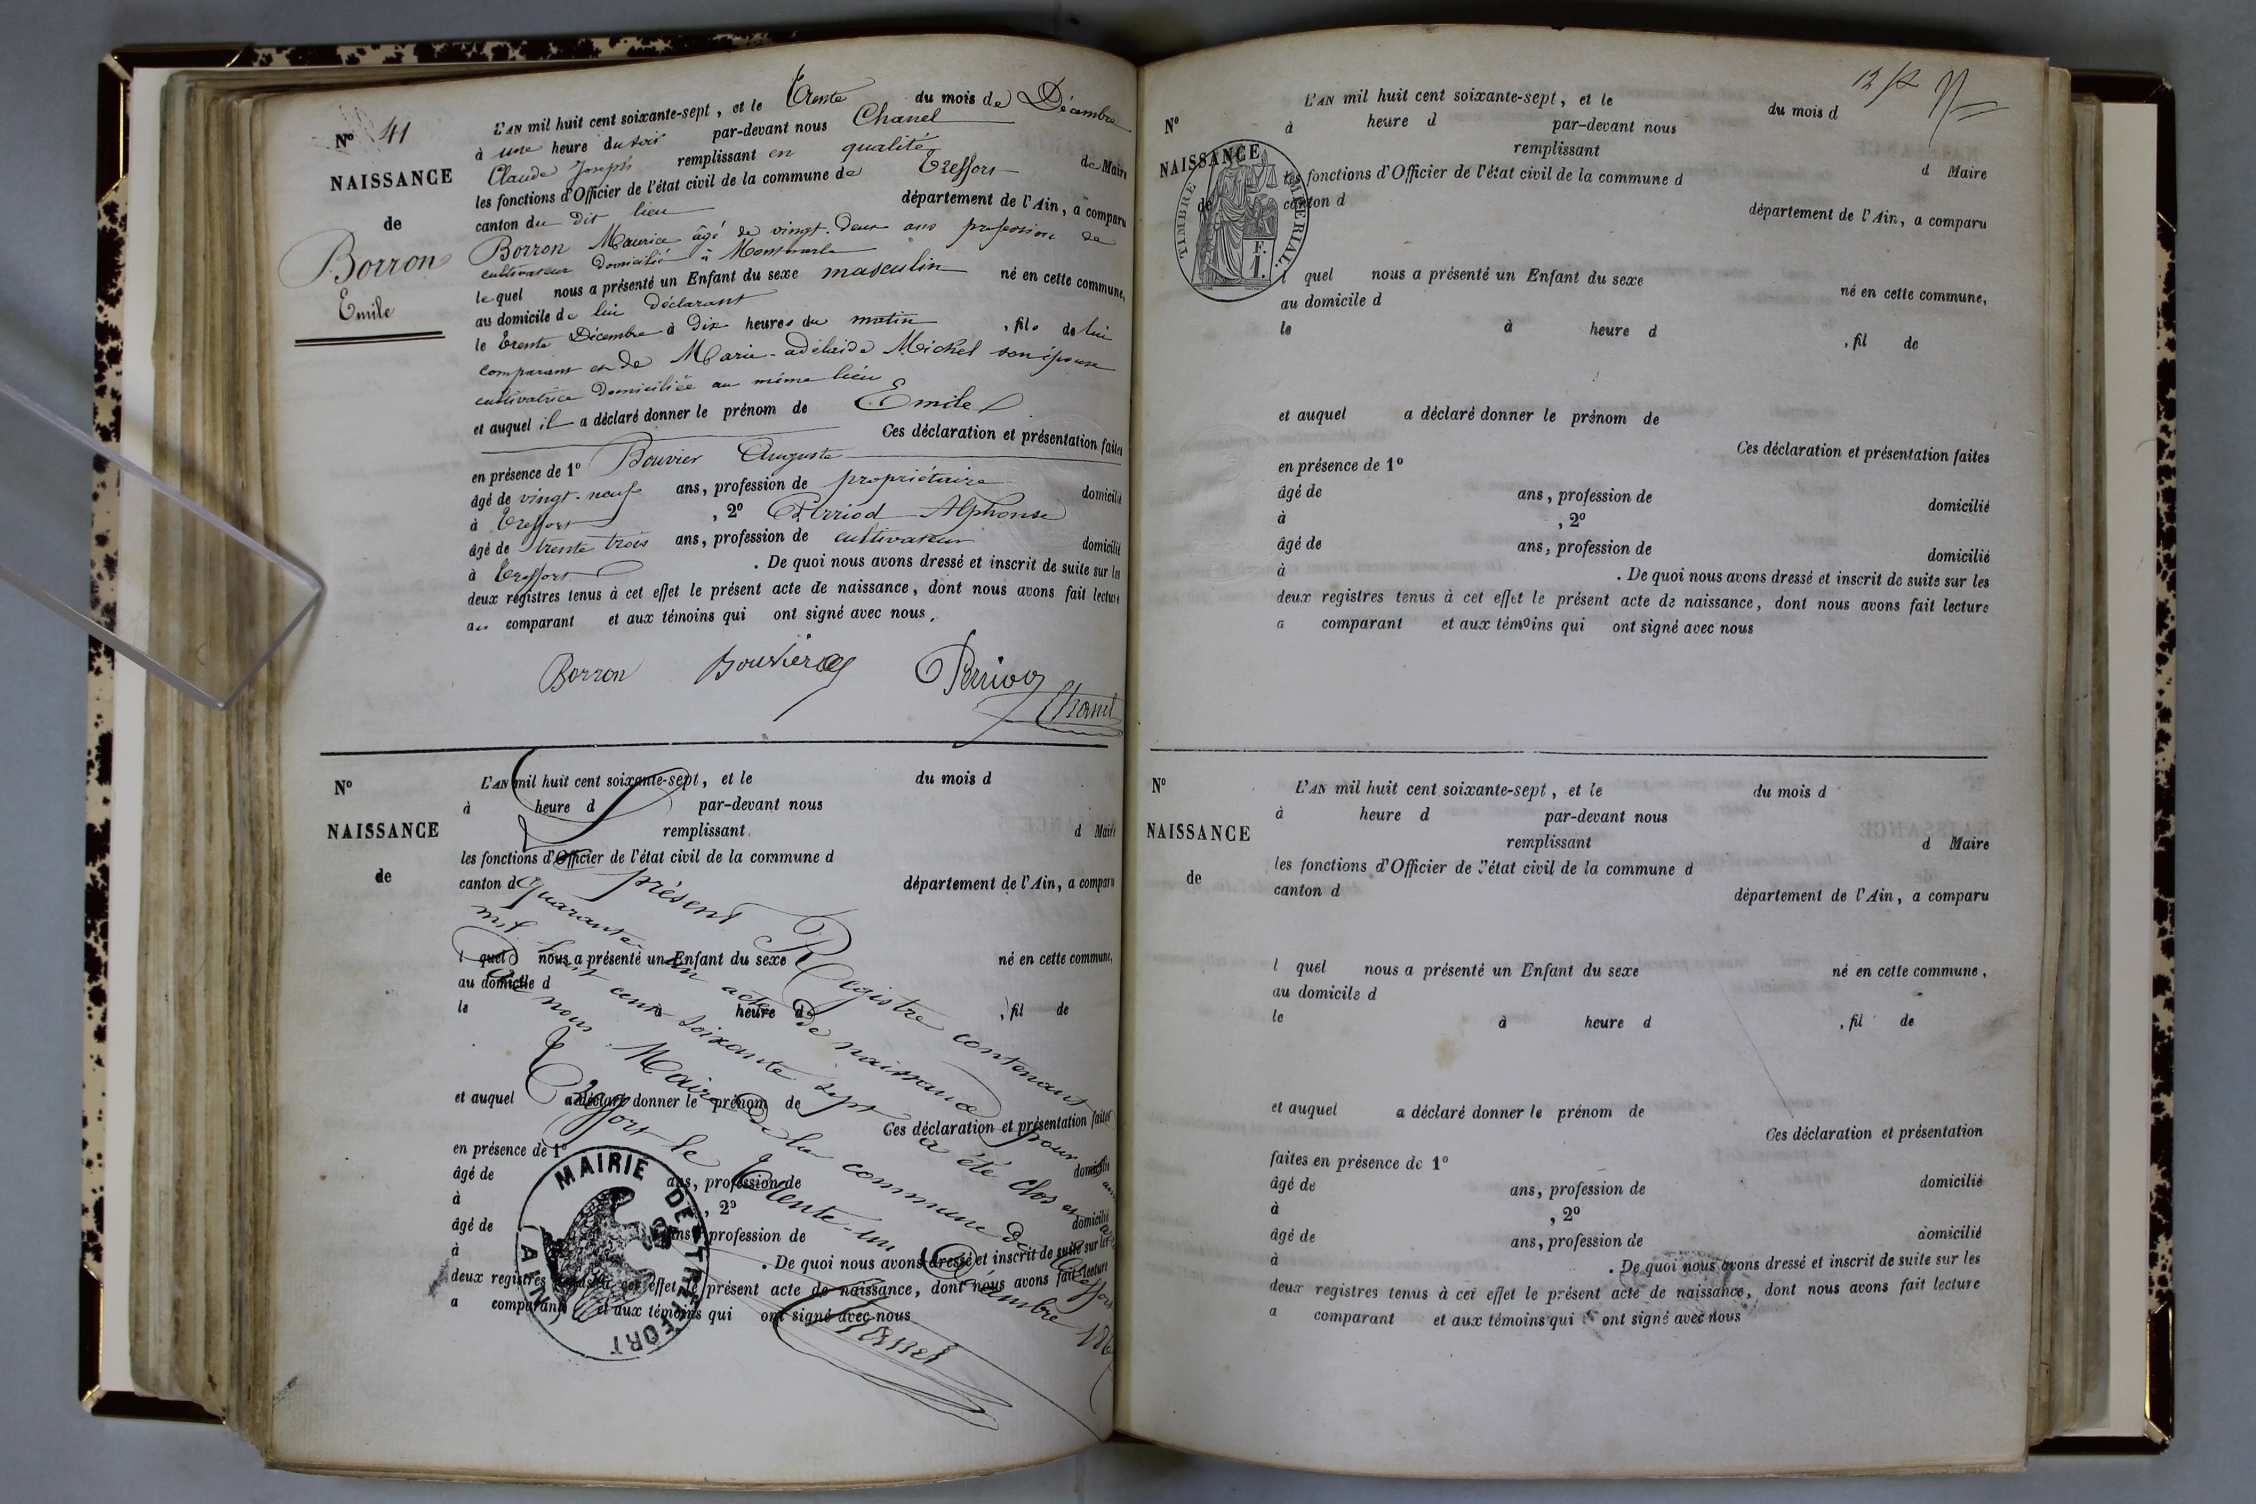 N° 41
NAISSANCE
de
Borron
Emile
L'AN mil huit cent soixante-sept, et le Trente du mois de Décembre
à une heure du soir par-devant nous Chanel
Claude Joseph remplissant en qualité de Maire
les fonctions d'Officier de l'état civil de la commune de Treffort
canton du dit lieu département de l'Ain, a comparu
Borron Maurice âgé de vingt-deux ans profession de
cultivateur domicilié à Montmerle
lequel nous a présenté un Enfant du sexe masculin né en cette commune,
au domicile de lui déclarant
le trente Décembre à dix heures du matin, fils de lui
comparant et de Marie-adélaïde Michel son épouse
cultivatrice domiciliée au même lieu
et auquel il a déclaré donner le prénom de Emile
Ces déclaration et présentation faites
en présence de 1° Bouvier Auguste
âgé de vingt-neuf ans, profession de propriétaire domicilié
à Treffort, 2° Perriod Alphonse
âgé de trente trois ans, profession de cultivateur domicilié
à Treffort. De quoi nous avons dressé et inscrit de suite sur les
deux registres tenus à cet effet le présent acte de naissance, dont nous avons fait lecture
au comparant et aux témoins qui ont signé avec nous.
Borron Bouvier Perriod
Chanel
N°
NAISSANCE
de
L'AN mil huit cent soixante-sept, et le du mois d
à heure d par-devant nous
remplissant d Maire
les fonctions d'Officier de l'état civil de la commune d
canton d département de l'Ain, a comparu
l quel nous a présenté un Enfant du sexe né en cette commune,
au domicile d
le à heure d , fil de
et auquel a déclaré donner le prénom de
Ces déclaration et présentation faites
en présence de 1°
âgé de ans, profession de domicilié
à , 2°
âgé de ans, profession de domicilié
à . De quoi nous avons dressé et inscrit de suite sur les
deux registres tenus à cet effet le présent acte de naissance, dont nous avons fait lecture
a comparant et aux témoins qui ont signé avec nous
Le présent Registre contenant
Quarante-un actes de naissance pour
mil huit cent soixante sept a été clos
par nous Maire de la commune de Treffort
Treffort le Trente-un Décembre 186
Chanel
MAIRIE DE TREFFORT
(AIN)
12
N°
NAISSANCE
de
TIMBRE IMPERIAL
F.
1.
L'AN mil huit cent soixante-sept, et le du mois d
à heure d par-devant nous
remplissant d Maire
les fonctions d'Officier de l'état civil de la commune d
canton d département de l'Ain, a comparu
l quel nous a présenté un Enfant du sexe né en cette commune,
au domicile d
le à heure d , fil de
et auquel a déclaré donner le prénom de
Ces déclaration et présentation faites
en présence de 1°
âgé de ans, profession de domicilié
à , 2°
âgé de ans, profession de domicilié
à . De quoi nous avons dressé et inscrit de suite sur les
deux registres tenus à cet effet le présent acte de naissance, dont nous avons fait lecture
a comparant et aux témoins qui ont signé avec nous
N°
NAISSANCE
de
L'AN mil huit cent soixante-sept, et le du mois d
à heure d par-devant nous
remplissant d Maire
les fonctions d'Officier de l'état civil de la commune d
canton d département de l'Ain, a comparu
l quel nous a présenté un Enfant du sexe né en cette commune,
au domicile d
le à heure d , fil de
et auquel a déclaré donner le prénom de
Ces déclaration et présentation
faites en présence de 1°
âgé de ans, profession de domicilié
à , 2°
âgé de ans, profession de domicilié
à . De quoi nous avons dressé et inscrit de suite sur les
deux registres tenus à cet effet le présent acte de naissance, dont nous avons fait lecture
a comparant et aux témoins qui ont signé avec nous